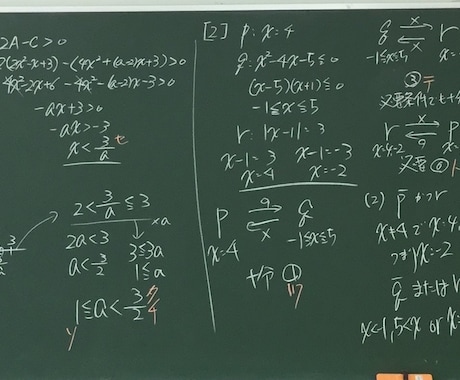 2A-C>0
2(2x²-x+3)-(4x²+(a-2)x+3)>0
4x²-2x+6-4x²-(a-2)x-3>0
-ax+3>0
-ax>-3
x<3/a
2<3/a≦3
×a
2a<3
3≦3a
a<3/2
1≦a
1≦a<3/2
[2] p:x=4
q:x²-4x-5≦0
(x-5)(x+1)≦0
-1≦x≦5
r:|x-1|=3
x-1=3 x-1=-3
x=4 x=-2
p ⇄ q
x=4 -1≦x≦5
十分 ①
q ⇄ r
-1≦x≦5 x=
③
r ⇄ p
x=4,-2
必要 ⓪
(2) p̄ かつ r
x≠4 で x=4,
つまり x=-2
q̄ または r
x<-1,5<x or x=